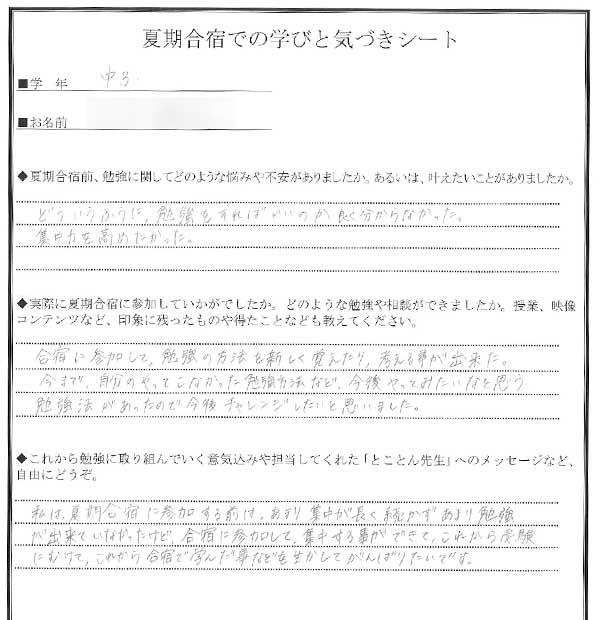 夏期合宿での学びと気づきシート
■学 年 中3.
■お名前
◆夏期合宿前、勉強に関してどのような悩みや不安がありましたか。あるいは、叶えたいことがありましたか。
どういうふうに、勉強をすればいいのか良く分からなかった。
集中力を高めたかった。
◆実際に夏期合宿に参加していかがでしたか。どのような勉強や相談ができましたか。授業、映像
コンテンツなど、印象に残ったものや得たことなども教えてください。
合宿に参加して、勉強の方法を新しく覚えたり、考える事が出来た。
今まで、自分のやってこなかった勉強方法など、今後やってみたいなと思う
勉強法があったので今後チャレンジしたいと思いました。
◆これから勉強に取り組んでいく意気込みや担当してくれた「とことん先生」へのメッセージなど、
自由にどうぞ。
私は、夏期合宿に参加する前は、あまり集中が長く続かずあまり勉強
が出来ていなかったけど、合宿に参加して、集中する事ができて、これから受験
にむけて、これから合宿で学んだ事などを生かしてがんばりたいです。